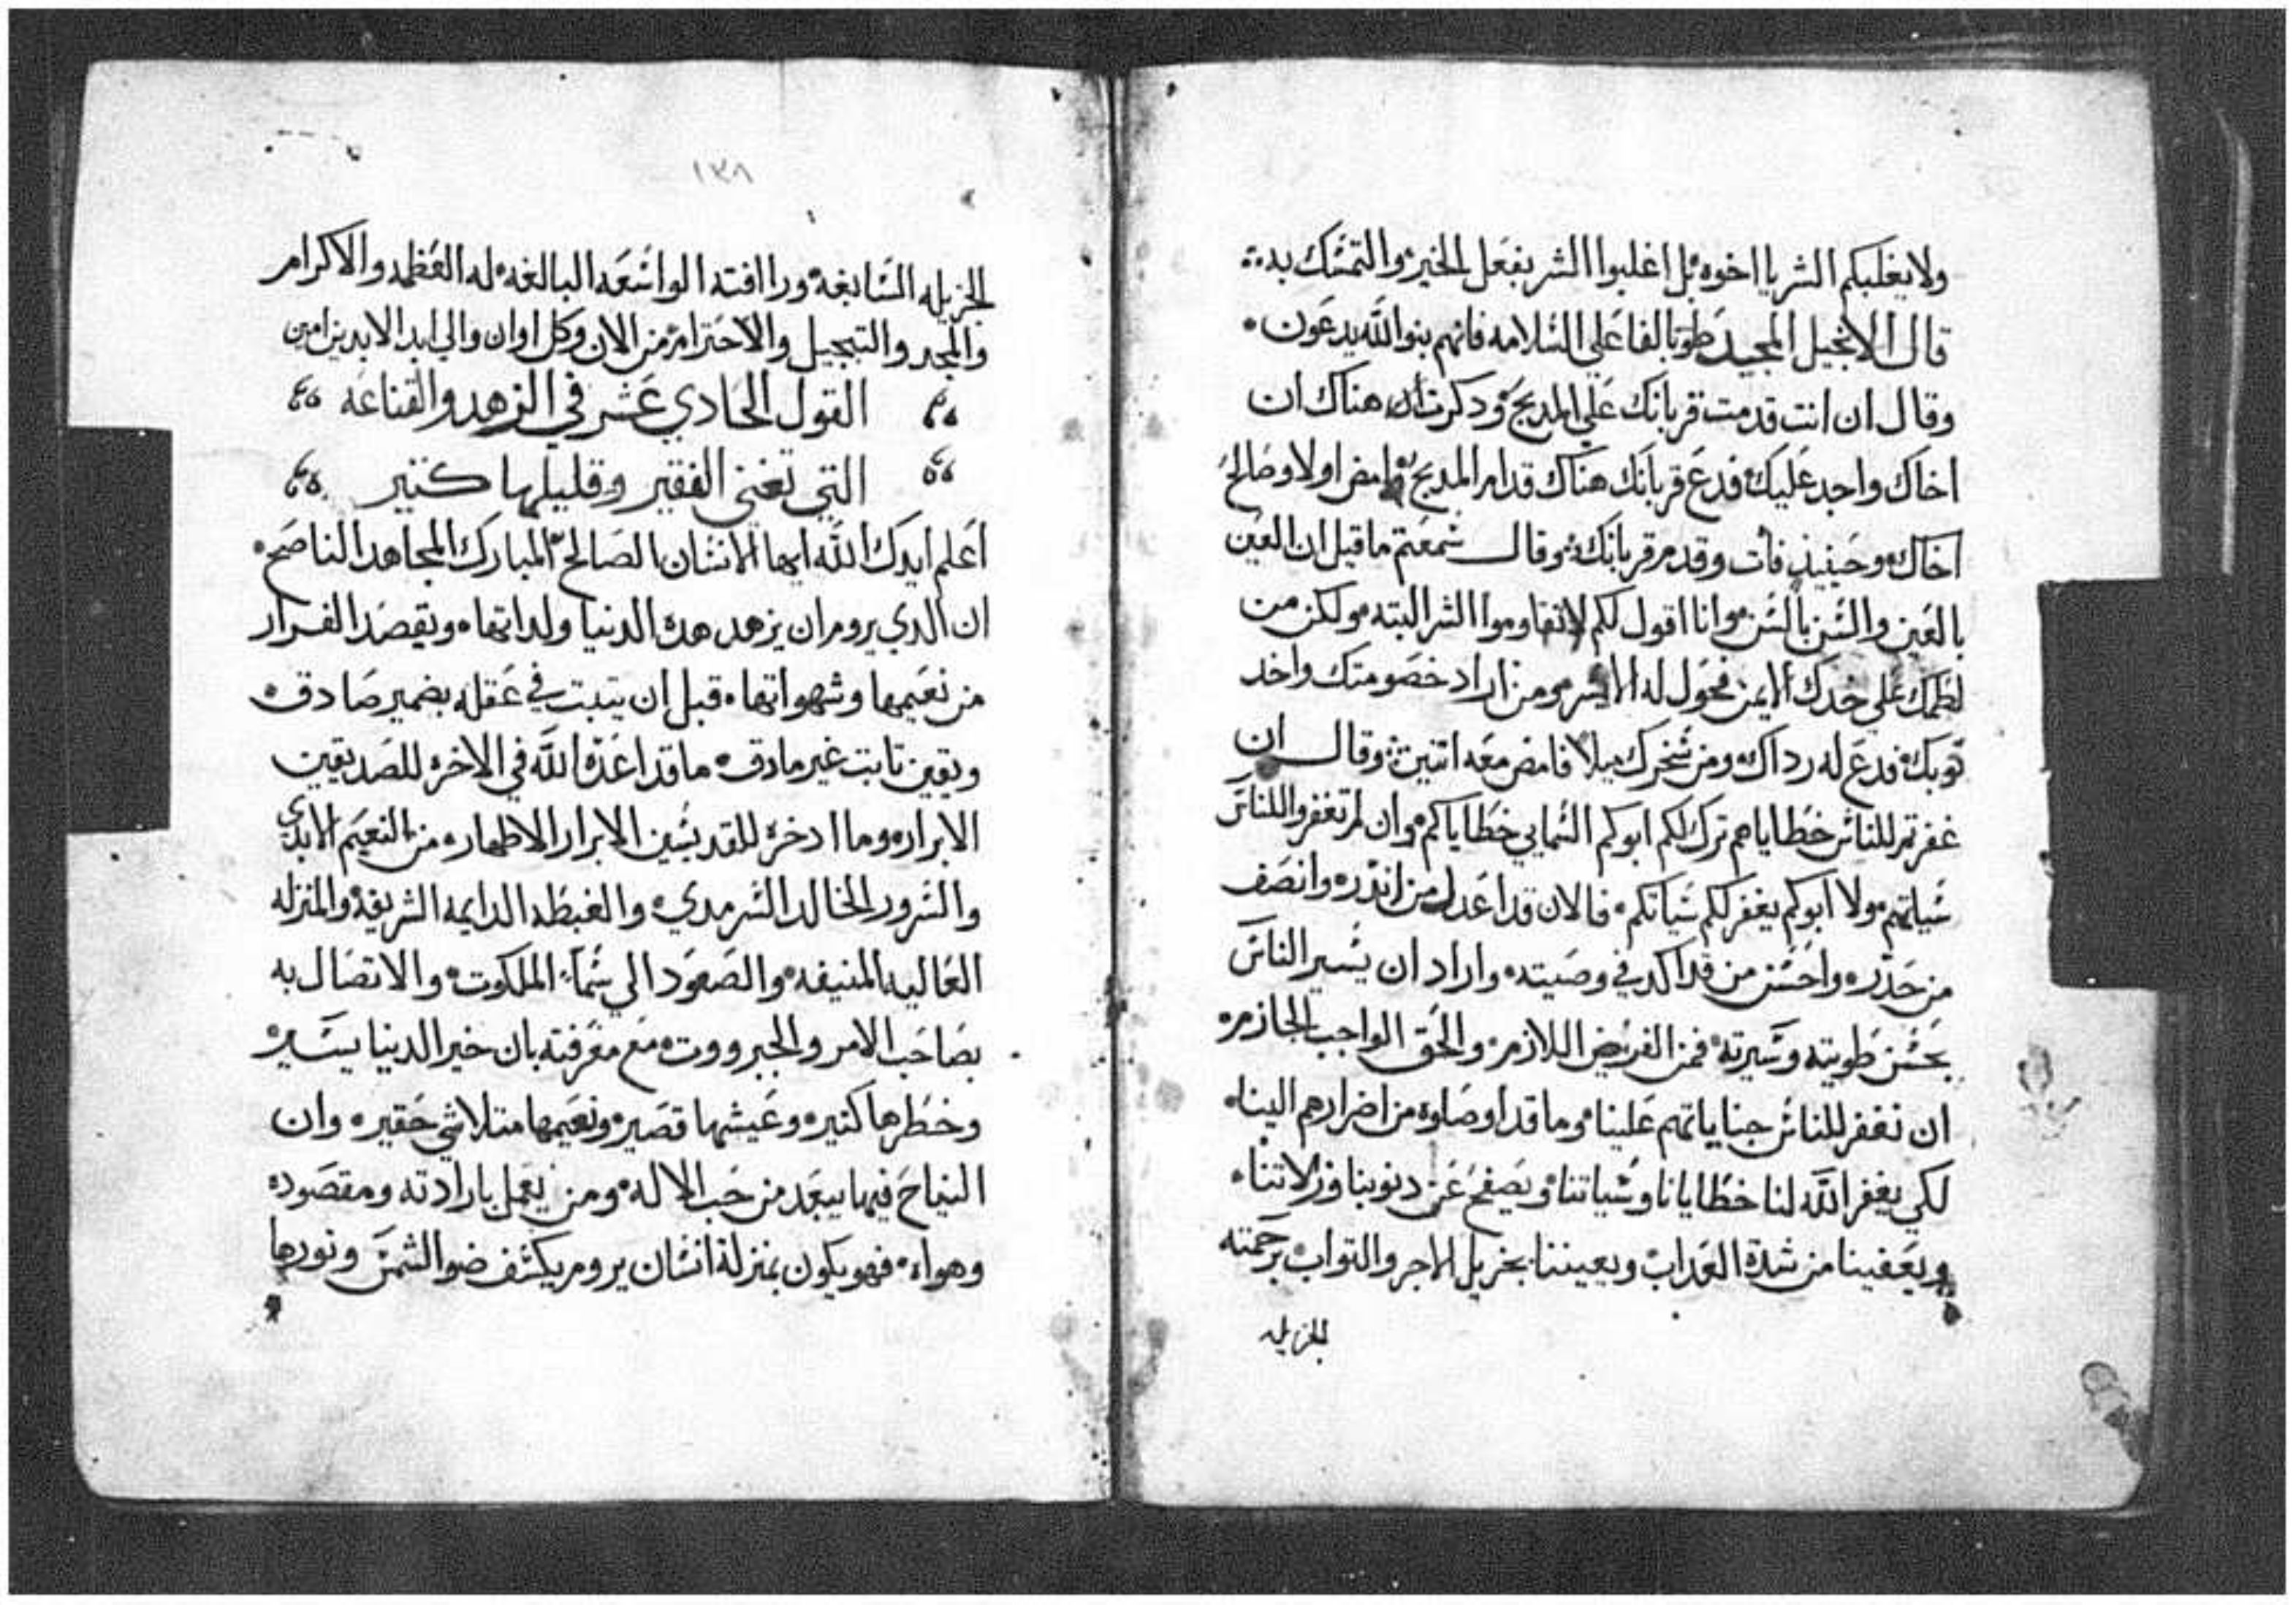 ولا يغلبكم الشر يا اخوه بل اغلبوا الشر بفعل الخير والتمسك به
قال الانجيل المجيد طوبا لفاعلي السلامه فانهم بنوالله يدعون
وقال ان انت قدمت قربانك علي المدبح ودكرت هناك ان
اخاك واجد عليك فدع قربانك هناك قدام المدبح وامض اولا وصالح
اخاك وحينيذ فأت وقدم قربانك وقال سمعتم ما قيل ان العين
بالعين والسن بالسن وانا اقول لكم لا تقاوموا الشر البته ولكن من
لطمك علي خدك الايمن فحول له الايسر ومن اراد خصومتك واخد
توبك فدع له رداك ومن سخرك ميلا فامض معه اتنين وقال ان
غفرتم للناس خطاياهم ترك لكم ابوكم السمايي خطاياكم وان لم تغفروا للناس
سياتهم ولا ابوكم يغفر لكم سياتكم فالان قد اعدل من اندره وانصف
من حدره واحسن من قد اكد في وصيته واراد ان يسير الناس
بحسن طويته وسيرته فمن الفريض اللازم والحق الواجب الجازم
ان نغفر للناس جناياتهم علينا وما قد اوصلوه من اضرارهم الينا
لكي يغفر الله لنا خطايانا وسياتنا ويصفح عن دنوبنا وزلاتنا
ويعفينا من شدة العداب ويعيننا بجزيل الاجر والتواب برحمته
الجزيله
١٣٨
الجزيله السابغه ورافته الواسعه البالغه له العظمه والاكرام
والمجد والتبجيل والاحترام من الان وكل اوان والي ابد الابدين امين
القول الحادي عشر في الزهد والقناعه
التي تغني الفقير وقليلها كتير
اعلم ايدك الله ايها الانسان الصالح المبارك المجاهد الناصح
ان الدي يروم ان يزهد هده الدنيا ولداتها ويقصد الفرار
من نعيمها وشهواتها قبل ان يتبت في عقله بضمير صادق
ويقين تابت غير مادق ما قد اعده الله في الاخره للصديقين
الابرار وما ادخره للقديسين الابرار الاطهار من النعيم الابدي
والسرور الخالد السرمدي والغبطه الدايمه الشريفه والمنزله
العاليه المنيفه والصعود الي سماء الملكوت والاتصال به
بصاحب الامر والجبرووت مع معرفته بان خير الدينا يسير
وخطرها كتير وعيشها قصير ونعيمها متلاشي حقير وان
النياح فيها يبعد من حب الاله ومن يعمل بارادته ومقصوده
وهواه فهو يكون بمنزلة انسان يروم يكشف ضو الشمس ونورها